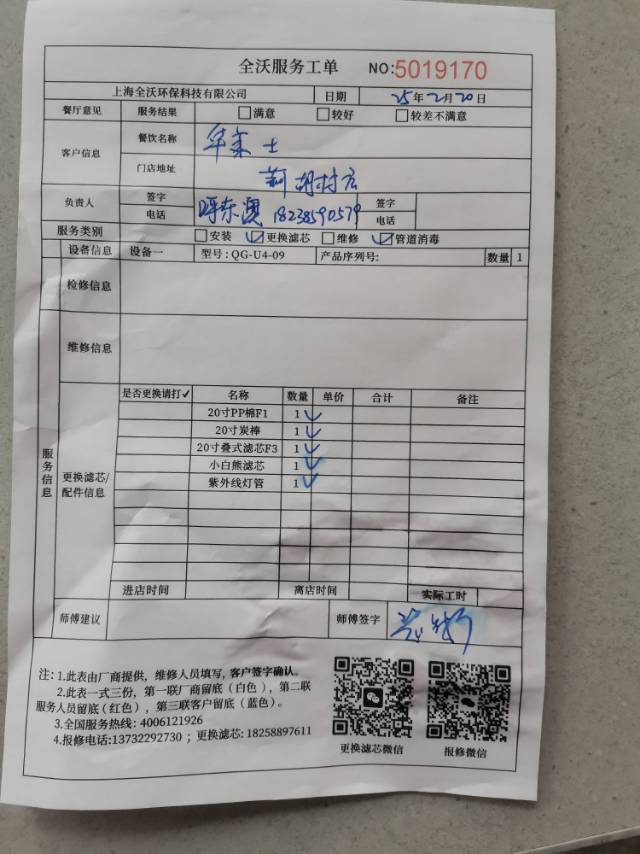 全沃服务工单 NO:5019170
上海全沃环保科技有限公司 日期 25年2月20日
餐厅意见 服务结果 满意 较好 较差不满意
客户信息 餐饮名称 华莱士
门店地址 荆胡村店
负责人 签字 签字
电话 18238590579 电话
服务类别 安装 更换滤芯 维修 管道消毒
设备信息 设备一 型号:QG-U4-09 产品序列号: 数量 1
检修信息
维修信息
服务信息
更换滤芯/配件信息
是否更换请打✓ 名称 数量 单价 合计 备注
20寸PP棉F1 1
20寸炭棒 1
20寸叠式滤芯F3 1
小白熊滤芯 1
紫外线灯管 1
进店时间 离店时间 实际工时
师傅建议 师傅签字
注:1.此表由厂商提供，维修人员填写，客户签字确认。
2.此表一式三份，第一联厂商留底（白色），第二联
服务人员留底(红色)，第三联客户留底（蓝色）。
3.全国服务热线: 4006121926
4.报修电话:13732292730 ；更换滤芯: 18258897611
更换滤芯微信 报修微信